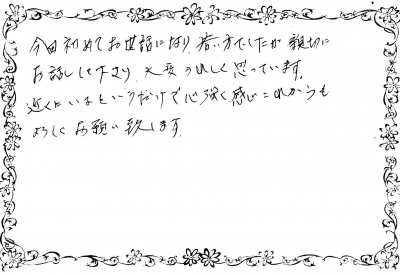 今回初めてお世話になり、若い方でしたが親切に
お話して下さり、大変うれしく思っています。
近くにいるというだけで心強く感じこれからも
よろしくお願い致します。